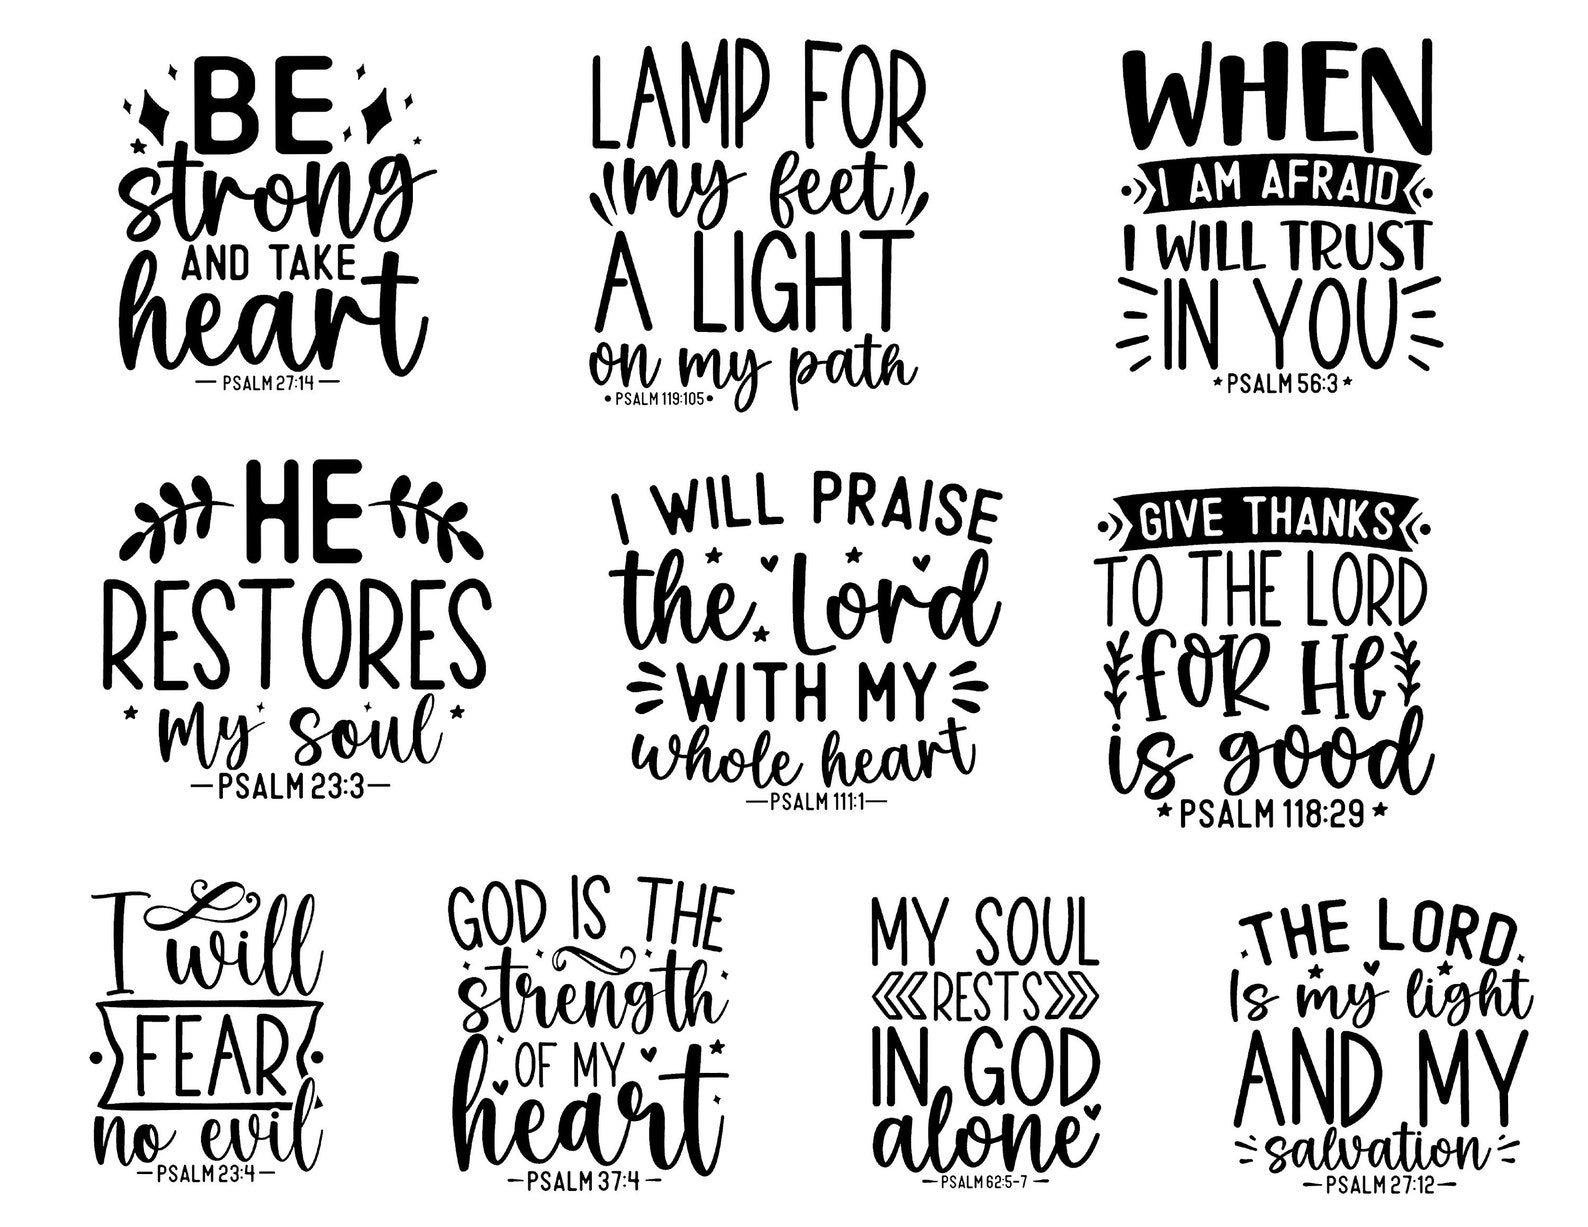 BE
strong
AND TAKE
heart
PSALM 27:14
LAMP FOR
my feet
A LIGHT
on my path
PSALM 119:105
WHEN
I AM AFRAID
I WILL TRUST
IN YOU
PSALM 56:3
HE
RESTORES
my soul
PSALM 23:3
I WILL PRAISE
the Lord
WITH MY
whole heart
PSALM 111:1
GIVE THANKS
TO THE LORD
FOR He
is good
PSALM 118:29
I will
FEAR
no evil
PSALM 23:4
GOD IS THE
strength
OF MY
heart
PSALM 37:4
MY SOUL
RESTS
IN GOD
alone
PSALM 62:5-7
THE LORD
Is my light
AND MY
salvation
PSALM 27:12